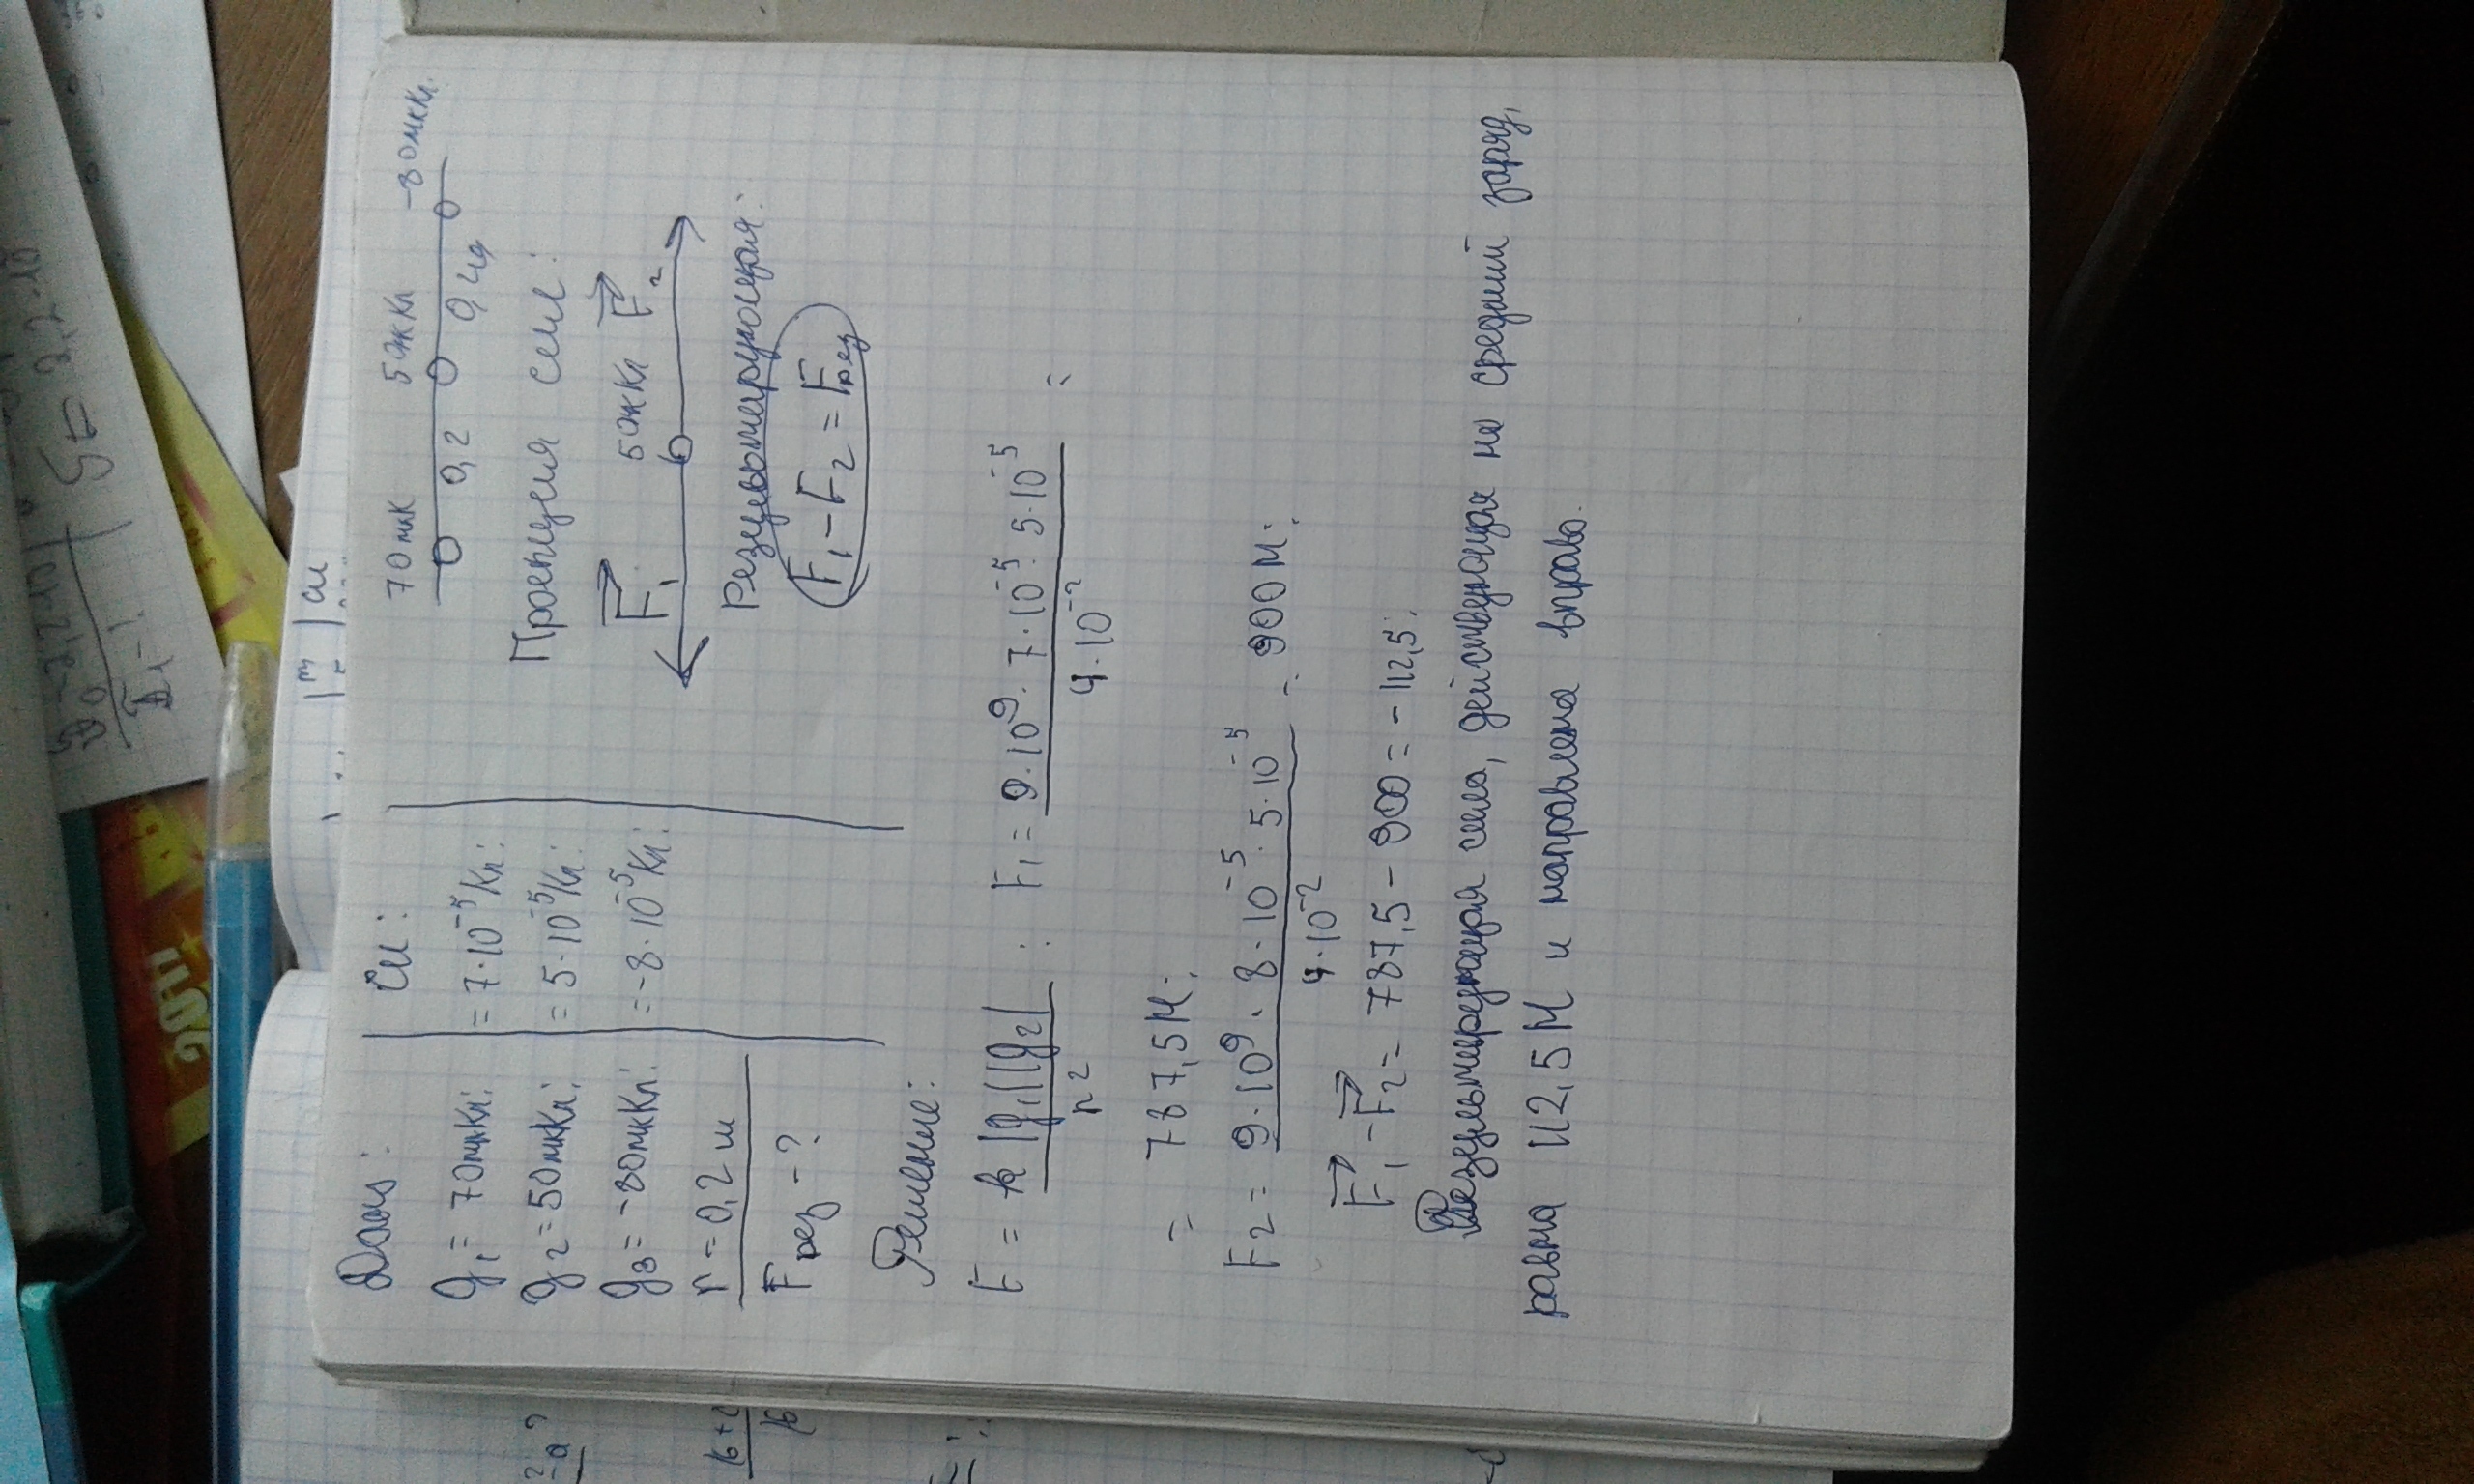 Дано:
g₁ = 70мкКл;
g₂ = 50мкКл;
g₃ = -80мкКл;
r = 0,2 м
Fрез - ?
Си:
= 7·10⁻⁵Кл;
= 5·10⁻⁵Кл;
= -8·10⁻⁵Кл;
70мк 50мкКл -80мкКл.
0,2 0,2
Проекция сил:
F₁ 50мкКл F₂
Результирующая:
F₁ - F₂ = Fрез
Решение:
F = k |g₁||g₂| / r² ; F₁ = 9·10⁹·7·10⁻⁵·5·10⁻⁵ / 4·10⁻² =
= 787,5Н;
F₂ = 9·10⁹·8·10⁻⁵·5·10⁻⁵ / 4·10⁻² = 900Н;
F₁ - F₂ = 787,5 - 900 = -112,5;
Результирующая сила, действующая на средний заряд,
равна 112,5Н и направлена вправо.
5t = 2,2·10